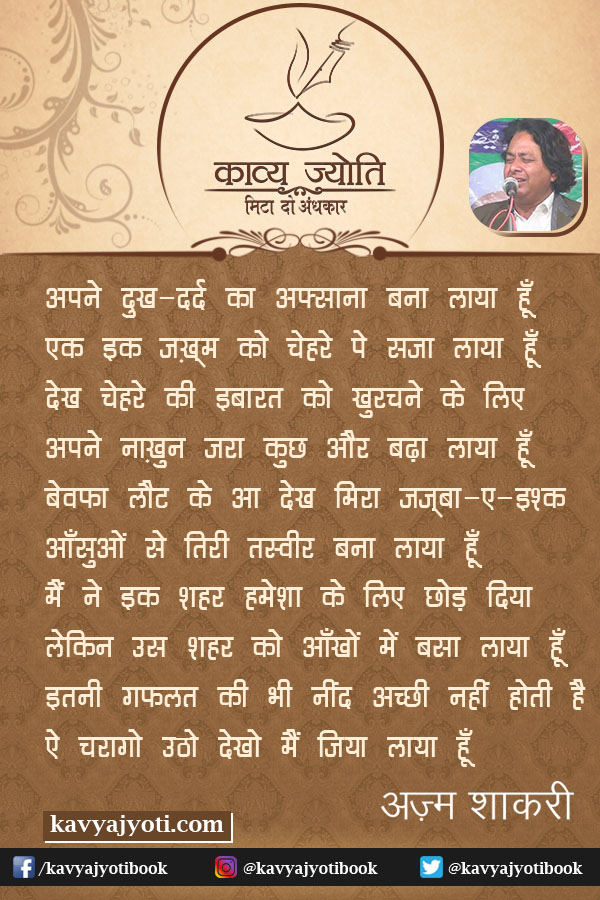 काव्य ज्योति
मिटा दो अंधकार
अपने दुख-दर्द का अफ्साना बना लाया हूँ
एक इक जख़्म को चेहरे पे सजा लाया हूँ
देख चेहरे की इबारत को खुरचने के लिए
अपने नाख़ुन जरा कुछ और बढ़ा लाया हूँ
बेवफा लौट के आ देख मिरा जज़्बा-ए-इश्क
आँसुओं से तिरी तस्वीर बना लाया हूँ
मैं ने इक शहर हमेशा के लिए छोड़ दिया
लेकिन उस शहर को आँखों में बसा लाया हूँ
इतनी गफलत की भी नींद अच्छी नहीं होती है
ऐ चरागो उठो देखो मैं जिया लाया हूँ
अज़्म शाकरी
kavyajyoti.com
/kavyajyotibook @kavyajyotibook @kavyajyotibook